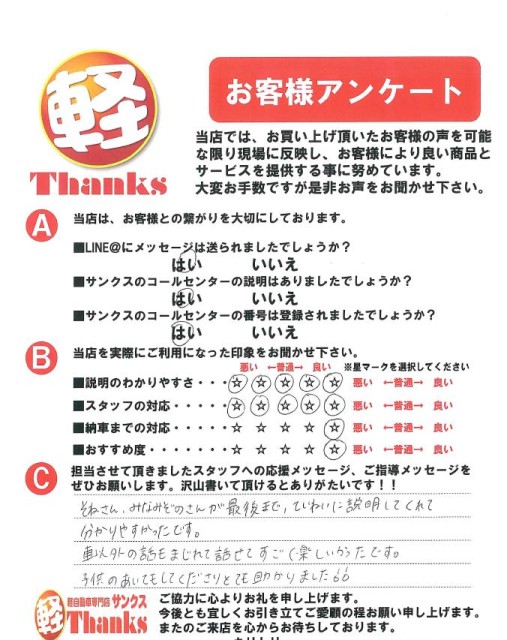 軽
Thanks
お客様アンケート
当店では、お買い上げ頂いたお客様の声を可能
な限り現場に反映し、お客様により良い商品と
サービスを提供する事に努めています。
大変お手数ですが是非お声をお聞かせ下さい。
A 当店は、お客様との繋がりを大切にしております。
■LINE@にメッセージは送られましたでしょうか?
はい いいえ
■サンクスのコールセンターの説明はありましたでしょうか?
はい いいえ
■サンクスのコールセンターの番号は登録されましたでしょうか?
はい いいえ
B 当店を実際にご利用になった印象をお聞かせ下さい。
悪い ←普通→ 良い ※星マークを選択してください
■説明のわかりやすさ・・・☆ ☆ ☆ ☆ ☆ 悪い ←普通→ 良い
■スタッフの対応・・・・・☆ ☆ ☆ ☆ ☆ 悪い ←普通→ 良い
■納車までの対応・・・・・☆ ☆ ☆ ☆ ☆ 悪い ←普通→ 良い
■おすすめ度・・・・・・・☆ ☆ ☆ ☆ ☆ 悪い ←普通→ 良い
C 担当させて頂きましたスタッフへの応援メッセージ、ご指導メッセージを
ぜひお願いします。沢山書いて頂けるとありがたいです!!
さん、みなみぞのさんが最後まで、ていねいに説明してくれて
分かりやすかったです。
車以外の話もまじれて話せてすごく楽しかったです。
子供のあいてもしてくださりとても助かりました
軽 軽自動車専門店 サンクス
Thanks
ご協力に心よりお礼を申し上げます。
今後とも宜しくお引き立てご愛顧の程お願い申し上げます。
またのご来店を心からお待ちしております。